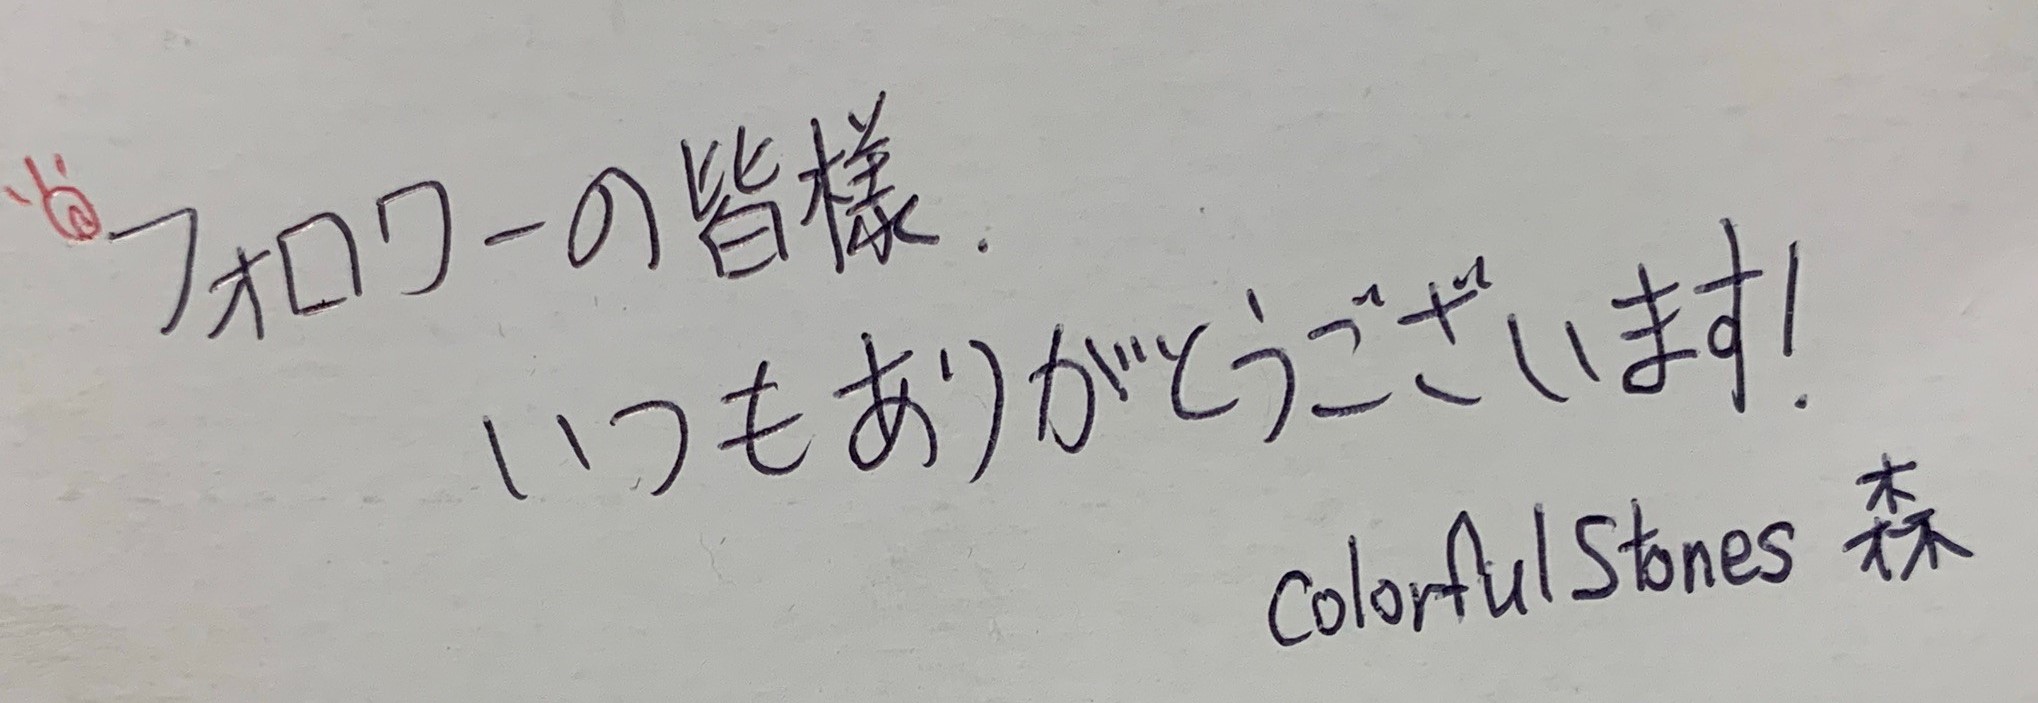 フォロワーの皆様.
いつもありがとうございます!
Colorful Stones 森